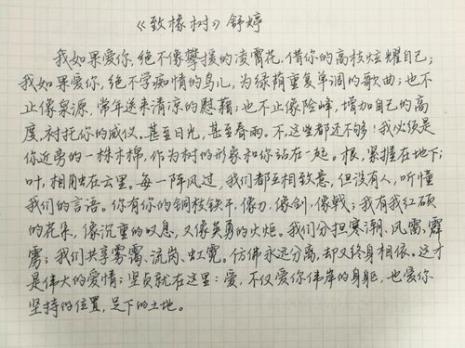 《致橡树》舒婷
我如果爱你,绝不像攀援的凌霄花,借你的高枝炫耀自己;
我如果爱你,绝不学痴情的鸟儿,为绿荫重复单调的歌曲;也不
止像泉源,常年送来清凉的慰藉;也不止像险峰,增加你的高
度,衬托你的威仪。甚至日光,甚至春雨。不,这些都还不够!我必须是
你近旁的一株木棉,作为树的形象和你站在一起。根,紧握在地下;
叶,相触在云里。每一阵风过,我们都互相致意,但没有人,听懂
我们的言语。你有你的铜枝铁干,像刀,像剑,像戟;我有我红硕
的花朵,像沉重的叹息,又像英勇的火炬。我们分担寒潮、风雷、霹
雳;我们共享雾霭、流岚、虹霓,仿佛永远分离,却又终身相依。这才
是伟大的爱情;坚贞就在这里:爱,不仅爱你伟岸的身躯,也爱你
坚持的位置,足下的土地。